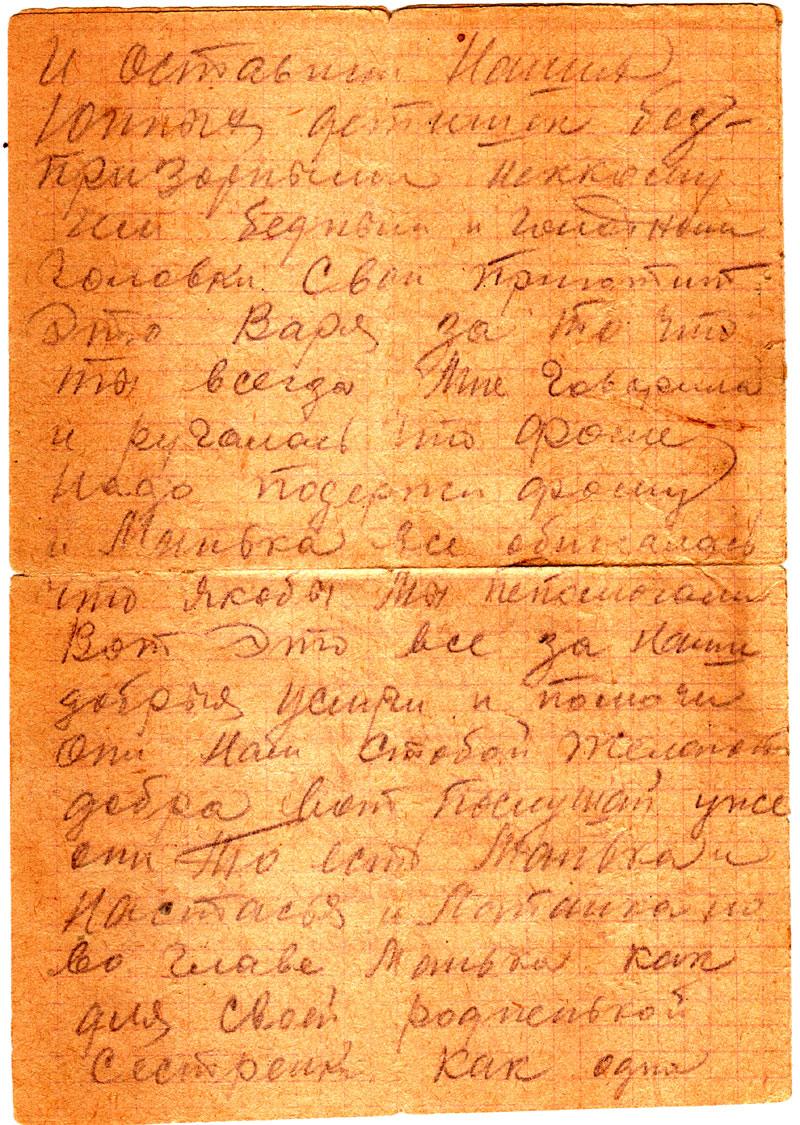 И оставим Наших
Юнных детишек без-
призорными неккому
им бедным и голодным
головки свои приютит.
Это Варя за то что
ты всегда мне говорила
и ругалась что фроше
надо подержи фрошу
и Манька все обижалась
что якобы мы непомогали
Вот Это все за наши
добрыя услуги и помочи
они нам стобой желают
добра вот послушай уже
они то есть Манька и
Настасья и Латанка но
во главе Манька как
для своей родненькой
сестренки как одна